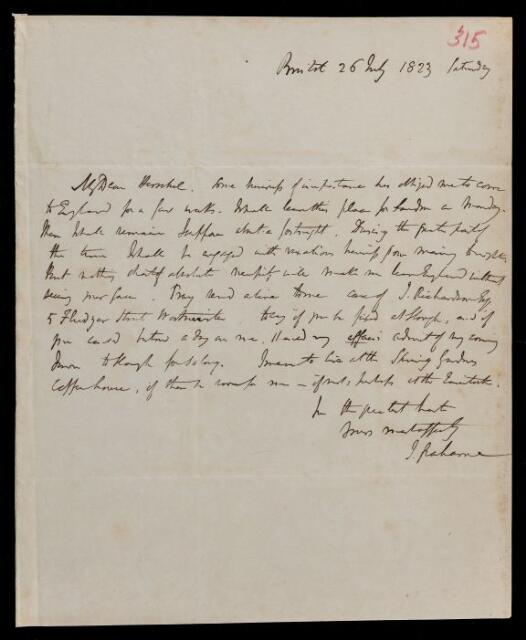 315
Bristol 26 July 1823 Saturday
My Dear Herschel. Some business of importance has obliged me to come
to England for a few weeks. I shall leave this place for London on Monday.
There I shall remain I suppose about a fortnight. During the greater part of
the time I shall be engaged with vexatious business from morning to night
But nothing short of absolute necessity will make me leave England without
seeing your face. Pray send a line to me care of J. Richardson Esq
5 Fludyer Street Westminster to say if you be fixed at Slough, and if
you could bestow a day on me, should my affairs admit of my coming
down to Slough for so long. I mean to live at the Spring Gardens
Coffee house, if there be room for me – if not, perhaps at the
In the greatest haste
Yours most affectly
J.